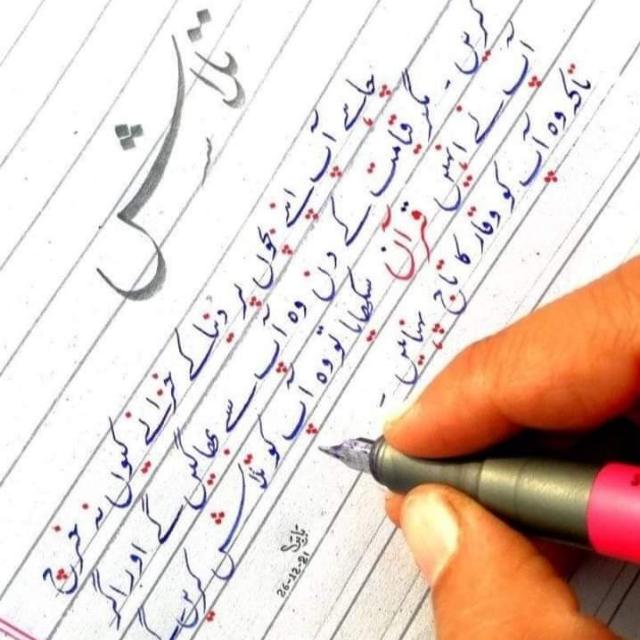 تلاش
چاہے آپ اپنے بچوں پر دنیا کے خزانے کیوں نہ خرچ
کریں - مگر قیامت کے دن وہ آپ سے بھاگیں گے اور اگر
آپ نے انہیں قرآن سکھایا تو وہ آپ کو تلاش کریں گے
تاکہ وہ آپ کو وقار کا تاج پہنائیں -
26-12-21